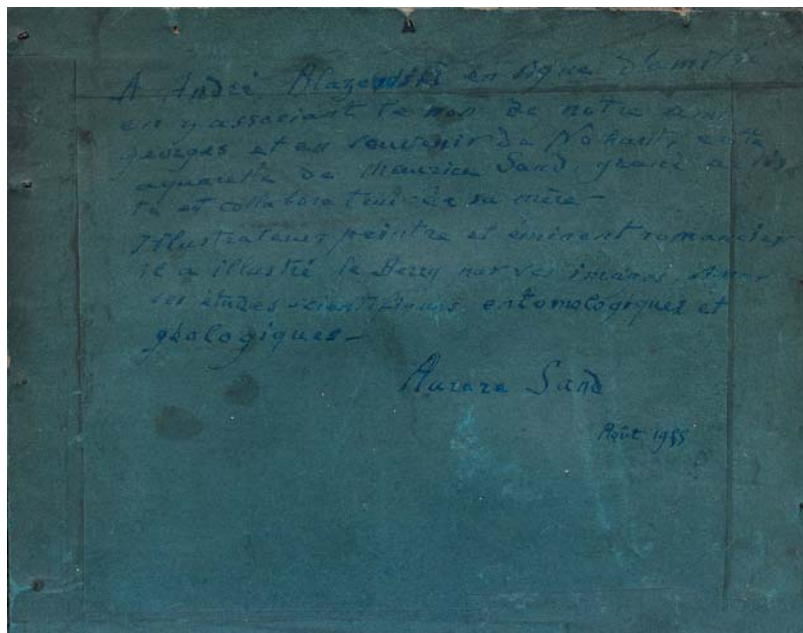 A André en signe d'amitié
en y associant le nom de notre ami
georges et en souvenir de Nohant, cette
aquarelle de Maurice Sand, grand artis
te et collaborateur de sa mère -
Illustrateur, peintre et éminent romancier
il a illustré le Berry par ses images et par
ses études scientifiques, entomologiques et
géologiques -
Aurore Sand
Août 1955